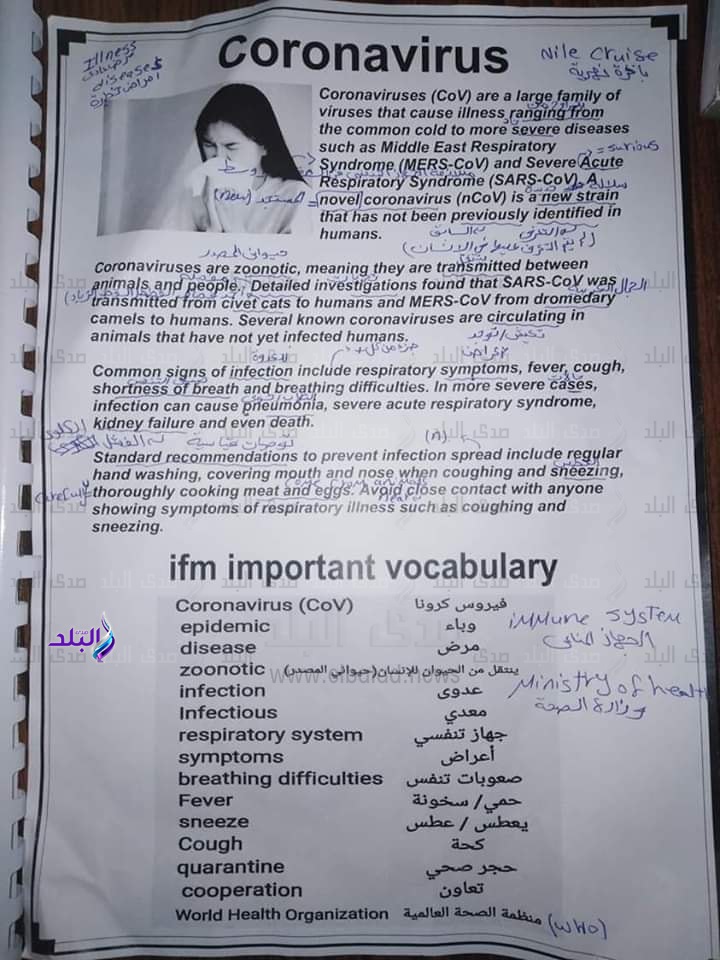 Coronavirus
illness
diseases
Nile Cruise
Coronaviruses (CoV) are a large family of
viruses that cause illness ranging from
the common cold to more severe diseases
such as Middle East Respiratory
= surious
Syndrome (MERS-CoV) and Severe Acute
Respiratory Syndrome (SARS-CoV). A
(new)
novel coronavirus (nCoV) is a new strain
that has not been previously identified in
humans.
حيواني المصدر
Coronaviruses are zoonotic, meaning they are transmitted between
animals and people. Detailed investigations found that SARS-CoV was
transmitted from civet cats to humans and MERS-CoV from dromedary
camels to humans. Several known coronaviruses are circulating in
animals that have not yet infected humans.
Common signs of infection include respiratory symptoms, fever, cough,
shortness of breath and breathing difficulties. In more severe cases,
infection can cause pneumonia, severe acute respiratory syndrome,
kidney failure and even death.
(n)
Standard recommendations to prevent infection spread include regular
hand washing, covering mouth and nose when coughing and sneezing,
carefully
thoroughly cooking meat and eggs. Avoid close contact with anyone
showing symptoms of respiratory illness such as coughing and
sneezing.
ifm important vocabulary
Coronavirus (CoV) فيروس كرونا
immune system
epidemic وباء
disease مرض
zoonotic ينتقل من الحيوان للإنسان(حيواني المصدر)
www.elbalad.news
infection عدوى
Ministry of health
وزارة الصحة
Infectious معدي
respiratory system جهاز تنفسي
symptoms أعراض
breathing difficulties صعوبات تنفس
Fever حمي/ سخونة
sneeze يعطس / عطس
Cough كحة
quarantine حجر صحي
cooperation تعاون
World Health Organization منظمة الصحة العالمية (WHO)
صدى البلد